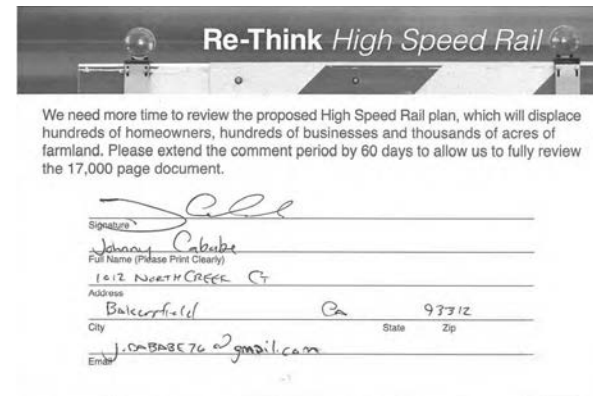 Re-Think High Speed Rail
We need more time to review the proposed High Speed Rail plan, which will displace
hundreds of homeowners, hundreds of businesses and thousands of acres of
farmland. Please extend the comment period by 60 days to allow us to fully review
the 17,000 page document.
Signature
Johnny Cababe
Full Name (Please Print Clearly)
1012 NORTH CREEK CT
Address
Bakersfield CA 93312
City State Zip
@gmail.com
Email